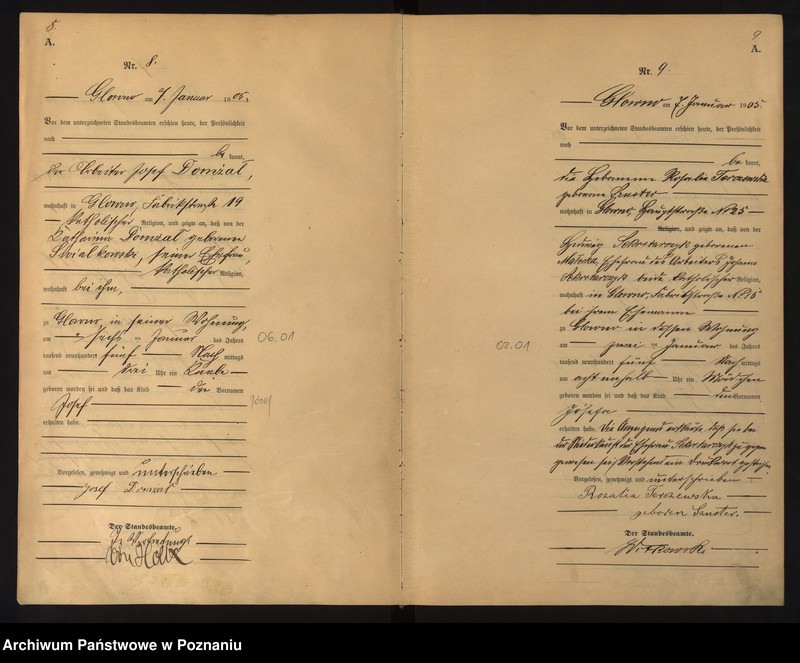 8.
A.
Nr. 8.
Glowno am 7. Januar 1905
Vor dem unterzeichneten Standesbeamten erschien heute, der Persönlichkeit
nach
be kannt,
der Arbeiter Josef Domżal,
wohnhaft in Glowno, Fabrikstraße 19
katholischer Religion, und zeigte an, daß von der
Katharina Domżal geborenen
Swialkowski, seiner Ehefrau
katholischer Religion,
wohnhaft bei ihm,
zu Glowno, in seiner Wohnung,
am sechs ten Januar des Jahres
tausend neunhundert fünf Nach mittags
um drei Uhr ein Knabe
geboren worden sei und daß das Kind die Vornamen
Josef
erhalten habe.
Vorgelesen, genehmigt und unterschrieben
Josef Domżal
Der Standesbeamte.
In Vertretung
06.01
Józef
9.
A.
Nr. 9.
Glowno am 7. Januar 1905
Vor dem unterzeichneten Standesbeamten erschien heute, der Persönlichkeit
nach
be kannt,
die Hebamme Rosalia Terczewska
geborene Sznoter
wohnhaft in Glowno, Hauptstraße No 25
Religion, und zeigte an, daß von der
Hedwig geborenen
Malecka, Ehefrau des Arbeiters Johann
beide katholischer Religion,
wohnhaft in Glowno, Fabrikstraße No 15
bei ihrem Ehemanne
zu Glowno in dessen Wohnung
am zwei ten Januar des Jahres
tausend neunhundert fünf Nach mittags
um acht einhalb Uhr ein Mädchen
geboren worden sei und daß das Kind den Vornamen
Józefa
erhalten habe. Die Anzeigende erklärte, daß sie bei
der Niederkunft der Ehefrau zugegen
gewesen sei. Vorstehend ein Druckwort gestrichen.
Vorgelesen, genehmigt und unterschrieben
Rozalia Terczewska
geboren Sznoter.
Der Standesbeamte.
Witkowski
02.01
Archiwum Państwowe w Poznaniu